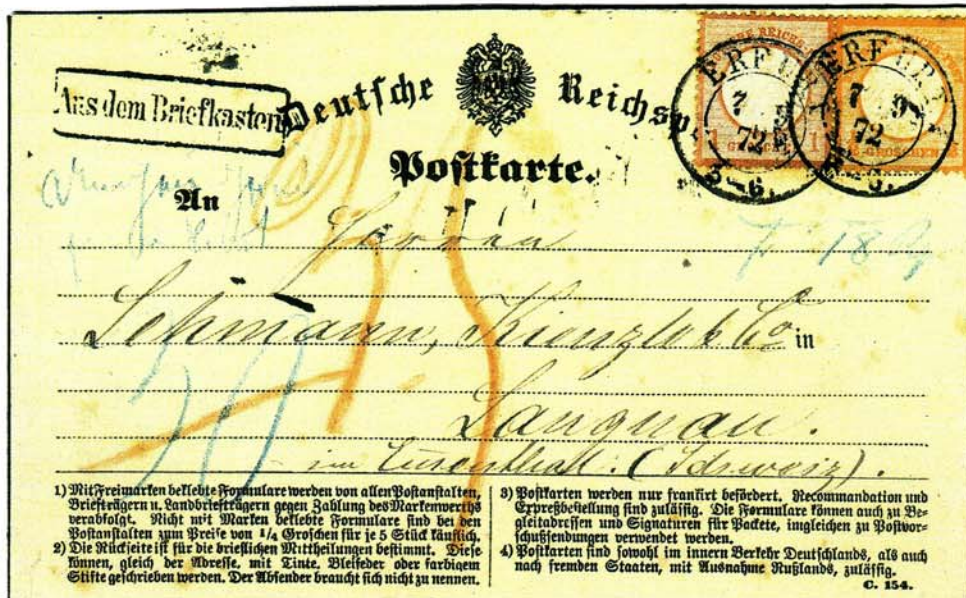 Aus dem Briefkasten
Deutsche Reichsp
Postkarte.
ERFURT
7 9
72
1 GROSCHEN 1
An
Herren
Lehmann, Kienzle & Co in
Langnau.
im Emmenthal. (Schweiz).
1) Mit Freimarken beklebte Formulare werden von allen Postanstalten,
Briefträgern u. Landbriefträgern gegen Zahlung des Markenwerths
verabfolgt. Nicht mit Marken beklebte Formulare sind bei den
Postanstalten zum Preise von 1/4 Groschen für je 5 Stück käuflich.
2) Die Rückseite ist für die brieflichen Mittheilungen bestimmt. Diese
können, gleich der Adresse, mit Tinte, Bleifeder oder farbigem
Stifte geschrieben werden. Der Absender braucht sich nicht zu nennen.
3) Postkarten werden nur frankirt befördert. Recommandation und
Expreßbestellung sind zulässig. Die Formulare können auch zu Be-
gleitadressen und Signaturen für Packete, imgleichen zu Postvor-
schußsendungen verwendet werden.
4) Postkarten sind sowohl im innern Verkehr Deutschlands, als auch
nach fremden Staaten, mit Ausnahme Rußlands, zulässig.
C. 154.